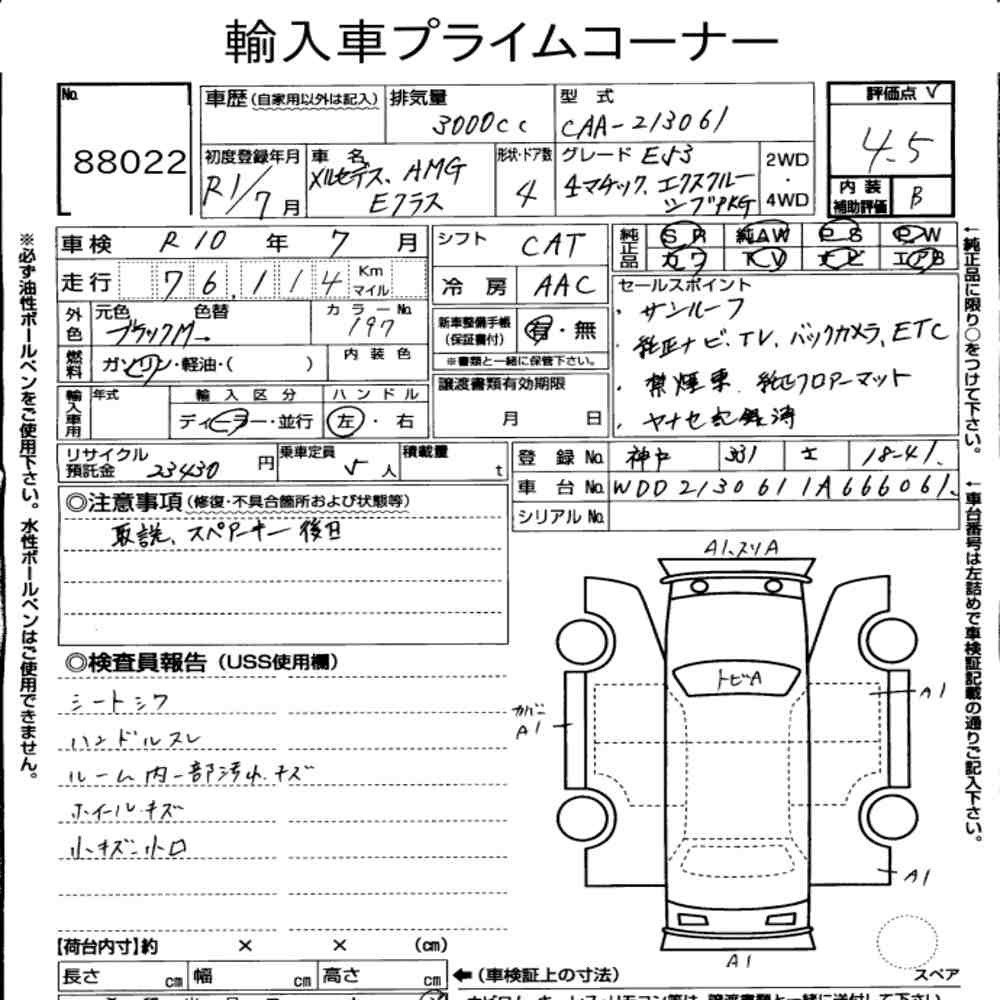 輸入車プライムコーナー
No. 88022
車歴(自家用以外は記入)
排気量 3000cc
型式 CAA-213061
評価点 4.5
内装補助評価 B
初度登録年月 R1/7月
車名 メルセデス、AMG Eクラス
形状・ドア数 4
グレード E53 4マチック、エクスクルーシブPKG
2WD・4WD
車検 R10年7月
走行 76,114 Km マイル
シフト CAT
冷房 AAC
純正品 SR 純AW PS PW
カワ TV ナビ エアB
外色 元色 ブラックM 色替
カラーNo. 197
燃料 ガソリン・軽油・( )
内装色
新車整備手帳(保証書付) 有・無
※書類と一緒に保管下さい。
輸入車用 年式
輸入区分 ディーラー・並行
ハンドル 左・右
譲渡書類有効期限
月 日
セールスポイント
・サンルーフ
・純正ナビ、TV、バックカメラ、ETC
・禁煙車、純正フロアーマット
・ヤナセ記録簿
リサイクル預託金 23430円
乗車定員 5人
積載量 t
登録No. 331 18-41
車台No. WDD2130611A666061
シリアルNo.
◎注意事項(修復・不具合箇所および状態等)
取説、スペアーキー後日
◎検査員報告(USS使用欄)
シートシワ
ハンドルスレ
ルーム内一部汚れ、キズ
ホイールキズ
小キズ、小凹
A1、スリA
トビA
カバー A1
A1
A1
A1
スペア
【荷台内寸】約 × × (cm)
長さ cm 幅 cm 高さ cm
←(車検証上の寸法)
※必ず油性ボールペンをご使用下さい。水性ボールペンはご使用できません。
←純正品に限り○をつけて下さい。
←車台番号は左詰めで車検証記載の通りご記入下さい。